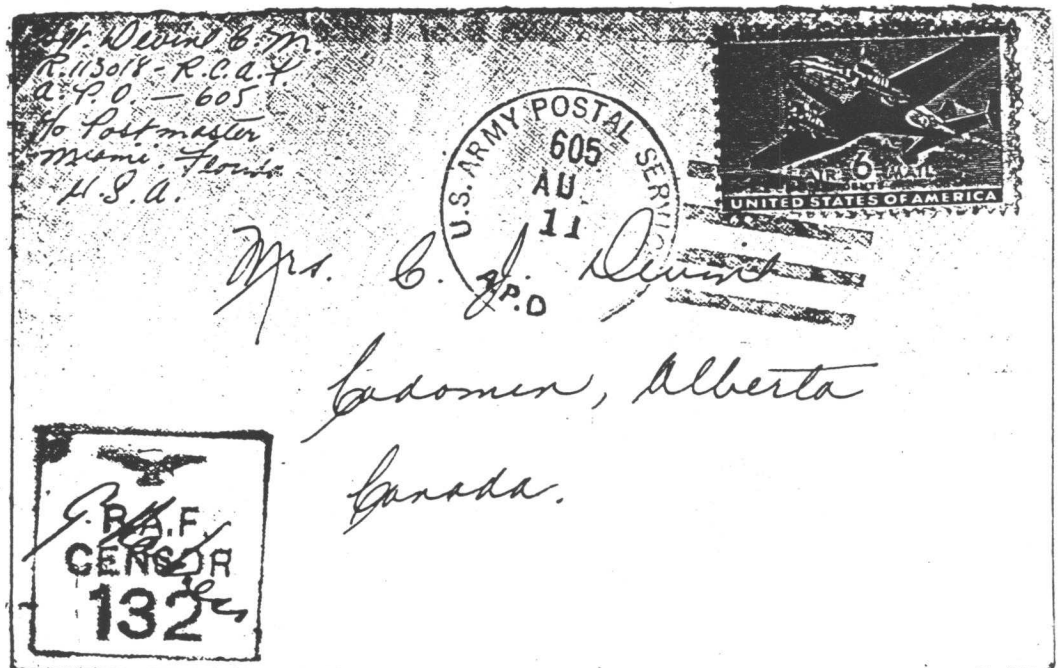 Sgt. Devine C. M.
R.113018 - R.C.A.F.
A.P.O. — 605
c/o Postmaster
Miami. Florida
U.S.A.
U.S. ARMY POSTAL SERVICE
605
AU
11
A.P.O
AIR 6 MAIL
CENTS
UNITED STATES OF AMERICA
Mrs. C. J. Devine
Cadomin, Alberta
Canada.
R.A.F.
CENSOR
132